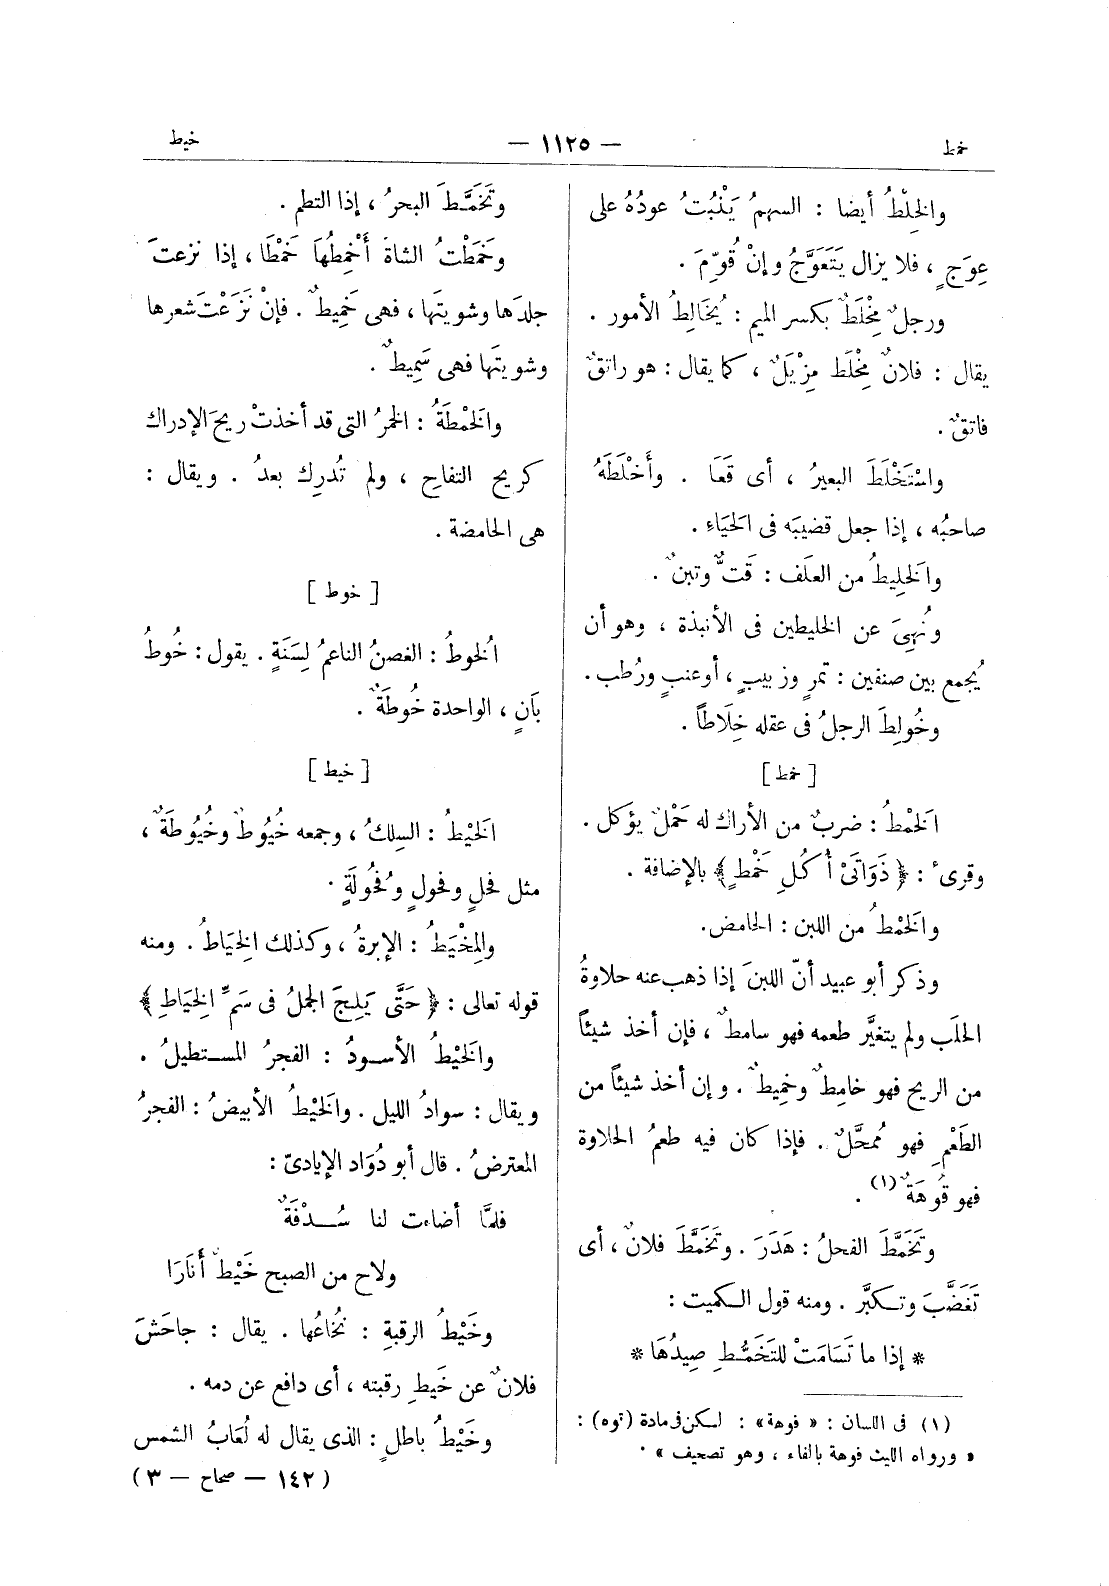 خمط
— ١١٢٥ —
خيط
والخِلْطُ أيضا : السهمُ يَنْبُتُ عودُهُ على
عِوَجٍ ، فلا يزال يَتَعَوَّجُ وإنْ قُوِّمَ .
ورجلٌ مِخْلَطٌ بكسر الميم : يُخَالِطُ الأمور .
يقال : فلانٌ مِخْلَط مِزْيَلٌ ، كما يقال : هو راتقٌ
فاتقٌ .
واسْتَخْلَطَ البعيرُ ، أى قَعَا . وأَخْلَطَهُ
صاحبُه ، إذا جعل قضيبَه فى الحَيَاءِ .
والخَلِيطُ من العلَف : قَتٌّ وتبنٌ .
ونُهِىَ عن الخليطين فى الأنبذة ، وهو أن
يُجمع بين صنفين : تمرٍ وزبيبٍ ، أو عنبٍ ورُطب .
وخُولِطَ الرجلُ فى عقله خِلَاطاً .
[ خمط ]
الخَمْطُ : ضربٌ من الأراك له حَمْلٌ يؤكل .
وقرىء : ﴿ ذَوَاتَىْ أُكُلِ خَمْطٍ ﴾ بالإضافة .
والخَمْطُ من اللبن : الحامض.
وذكر أبو عبيد أنّ اللبن إذا ذهب عنه حلاوةُ
الحلَب ولم يتغيَّر طعمه فهو سامطٌ ، فإن أخذ شيئاً
من الريح فهو خامِطٌ وخَمِيطٌ . وإن أخذ شيئاً من
الطَعْمِ فهو مُمَحَّلٌ . فإذا كان فيه طعمُ الحلاوة
فهو قُوهَةٌ (١) .
وتَخَمَّطَ الفحلُ : هَدَرَ . وتَخَمَّطَ فلانٌ ، أى
تَغَضَّبَ وتكبَّر . ومنه قول الكميت :
* إذا ما تَسَامَتْ للتَخَمُّطِ صِيدُهَا *
(١) فى اللسان : « فوهة » : لكن فى مادة (توه) :
« ورواه الليث فوهة بالفاء ، وهو تصحيف » .
وتَخَمَّطَ البحرُ ، إذا التطم .
وخَمَطْتُ الشاةَ أَخْمِطُهَا خَمْطًا ، إذا نزعتَ
جلدَها وشويتَها ، فهى خَمِيطٌ . فإنْ نَزَعْتَ شعرها
وشويتَها فهى سَمِيطٌ .
والخَمْطَةُ : الخمرُ التى قد أخذتْ ريحَ الإدراك
كريح التفاحِ ، ولم تُدرِك بعدُ . ويقال :
هى الحامضة .
[ خوط ]
الخُوطُ : الغصنُ الناعمُ لِسَنَةٍ . يقول : خُوطُ
بَانٍ ، الواحدة خُوطَةٌ .
[ خيط ]
الخَيْطُ : السِلكُ ، وجمعه خُيُوطٌ وخُيُوطَةٌ ،
مثل فحلٍ وفحولٍ وفُحُولَةٍ .
والمِخْيَطُ : الإبرةُ ، وكذلك الخِيَاطُ . ومنه
قوله تعالى : ﴿ حَتَّى يَلِجَ الجملُ فى سَمِّ الخِيَاطِ ﴾
والخَيْطُ الأسودُ : الفجرُ المستطيلُ .
ويقال : سوادُ الليل . والخَيْطُ الأبيضُ : الفجرُ
المعترضُ . قال أبو دُوَاد الإيادىّ :
فلمَّا أضاءت لنا سُدْفَةٌ
ولاح من الصبح خَيْطٌ أَنَارَا
وخَيْطُ الرقبةِ : نُخَاعُها . يقال : جاحَشَ
فلانٌ عن خَيطِ رقبته ، أى دافع عن دمه .
وخَيْطُ باطلٍ : الذى يقال له لُعَابُ الشمس
( ١٤٢ — صحاح — ٣ )